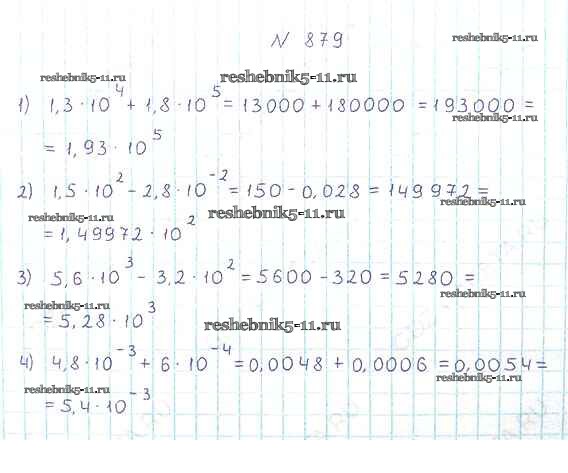 № 879
reshebnik5-11.ru
reshebnik5-11.ru
reshebnik5-11.ru
1) 1,3·10⁴ + 1,8·10⁵ = 13000 + 180000 = 193000 =
reshebnik5-11.ru
= 1,93·10⁵
2) 1,5·10² - 2,8·10⁻² = 150 - 0,028 = 149 972 =
reshebnik5-11.ru
reshebnik5-11.ru
reshebnik5-11.ru
= 1,49972·10²
3) 5,6·10³ - 3,2·10² = 5600 - 320 = 5280 =
reshebnik5-11.ru
reshebnik5-11.ru
= 5,28·10³
reshebnik5-11.ru
4) 4,8·10⁻³ + 6·10⁻⁴ = 0,0048 + 0,0006 = 0,0054 =
reshebnik5-11.ru
reshebnik5-11.ru
= 5,4·10⁻³